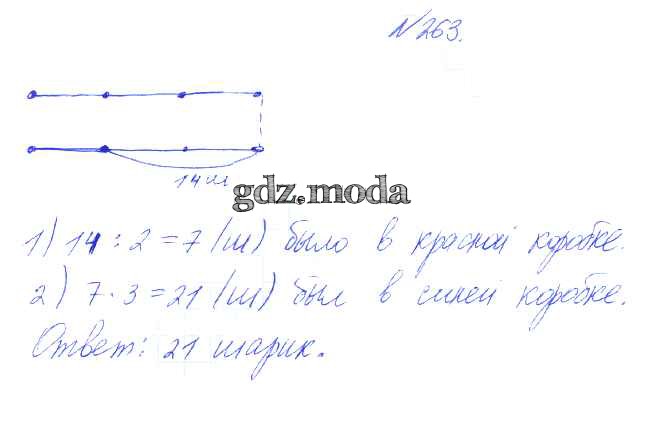 №263.
14 ш
gdz.moda
1) 14 : 2 = 7 (ш) было в красной коробке.
2) 7 · 3 = 21 (ш) был в синей коробке.
Ответ: 21 шарик.